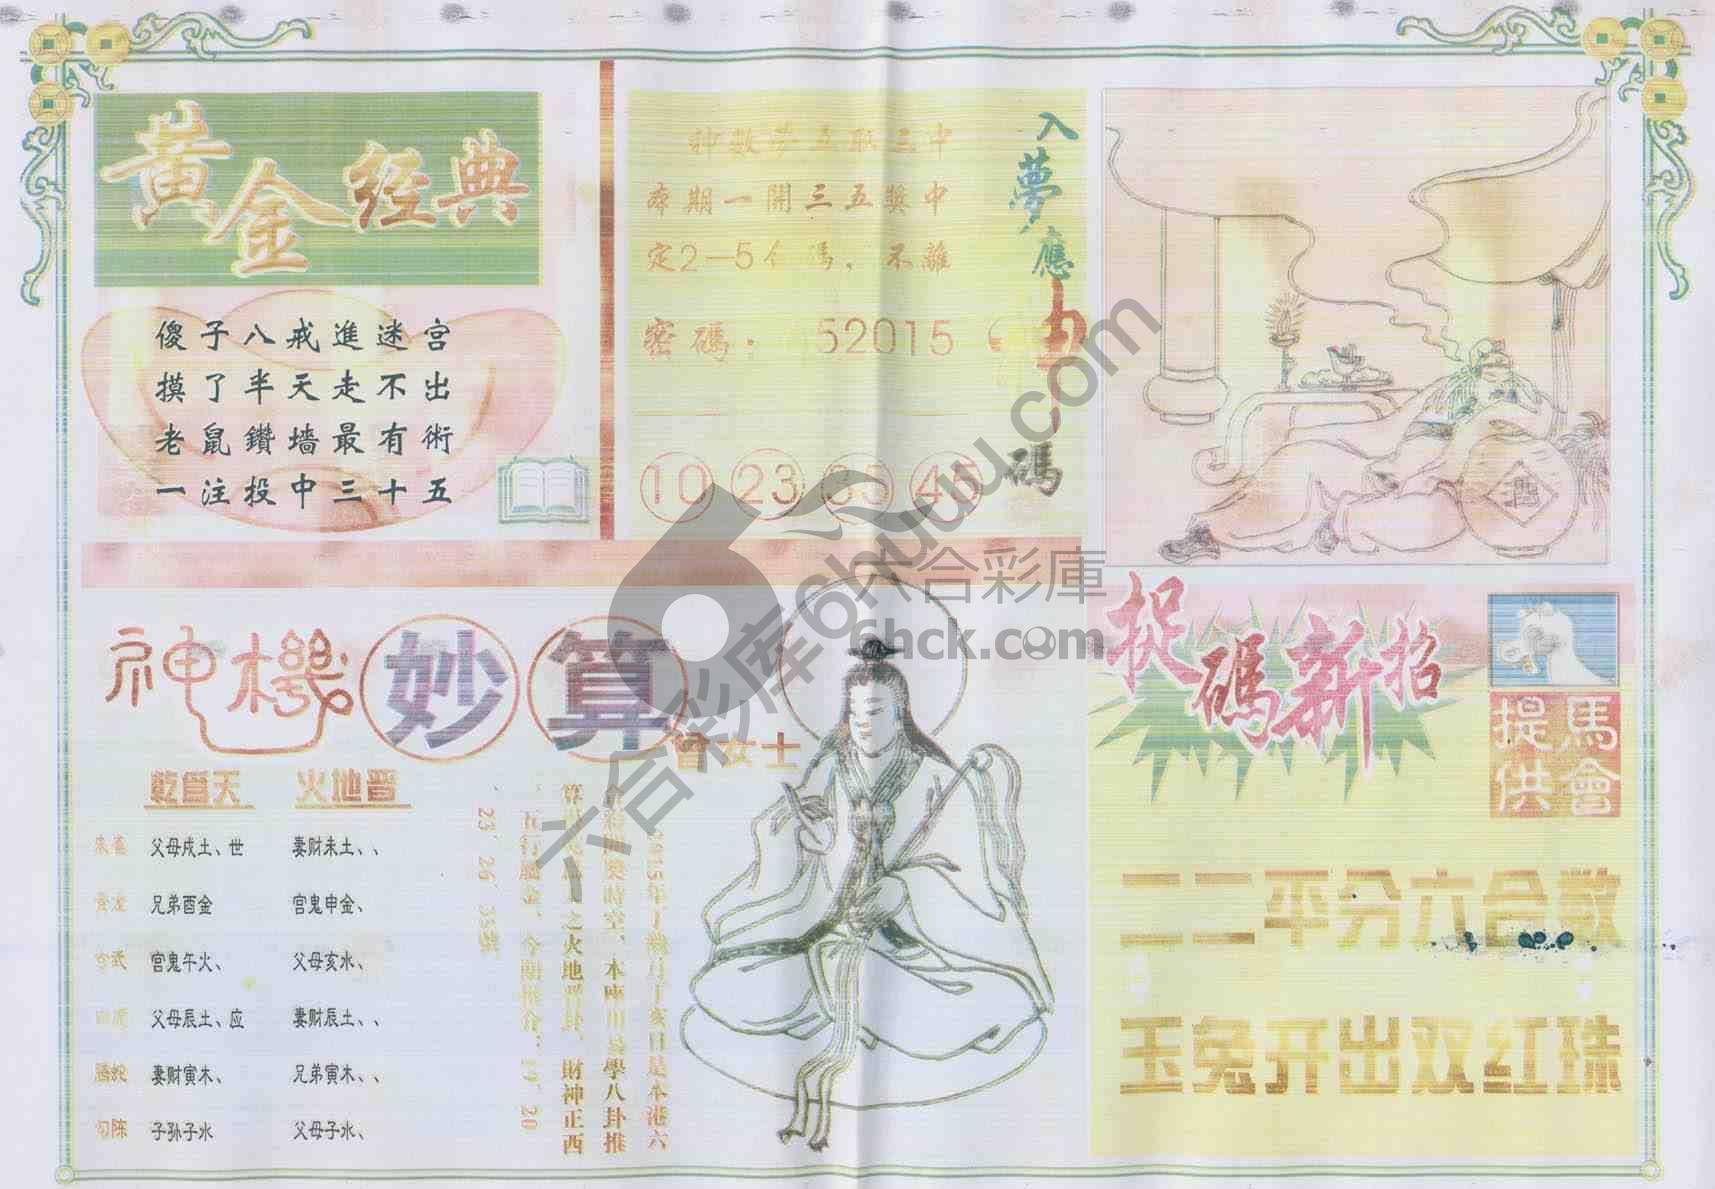 黃金經典
傻子八戒進迷宮
摸了半天走不出
老鼠鑽墻最有術
一注投中三十五
神數夢五取三中
本期一開三五獎中
定2—5個碼，不離
密碼：52015
10 23 45
入夢應 碼
酒
神機妙算
曾女士
乾為天 火地晋
朱雀 父母戌土、世 妻财未土、、
青龙 兄弟酉金 官鬼申金、
玄武 官鬼午火、 父母亥水、
白虎 父母辰土、应 妻财辰土、、
腾蛇 妻财寅木、 兄弟寅木、、
勾陈 子孙子水 父母子水、
丁亥日是本港六
獎時空，本座用易學八卦推
算 之火地晋卦，財神正西
，五行屬金，今期推介：19，20
，23，26，35號
捉碼新招
馬會提供
二二平分六合数
玉兔开出双红珠
六合彩库6huuu.com
六合彩庫
6hck.com